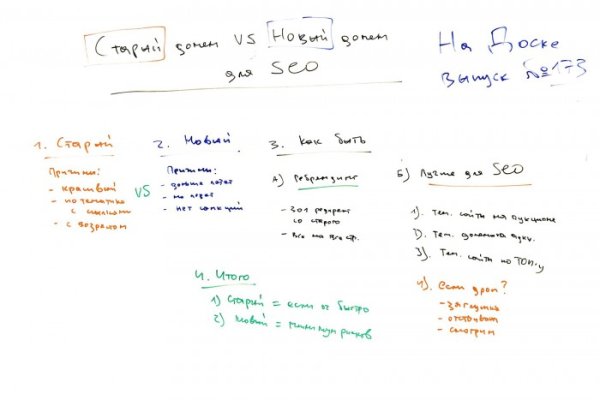 Старый домен VS Новый домен
для SEO
На Доске
выпуск №173
1. Старый
Причины:
- красивый
- по тематике
с ссылками
- с возрастом
VS
2. Новый
Причины:
- дольше
- нет санкций
3. Как быть
А) Ребрендинг
- 301 редирект
со старого
- Все на все стр.
Б) Лучше для SEO
1). Тем. сайты на аукционе
2). Тем. домены аукц.
3). Тем. сайты по ТОП-у
4). Если дроп?
- загрузка
- отстойник
- смотрим
4. Итого
1) Старый = если оч быстро
2) Новый = минимум рисков